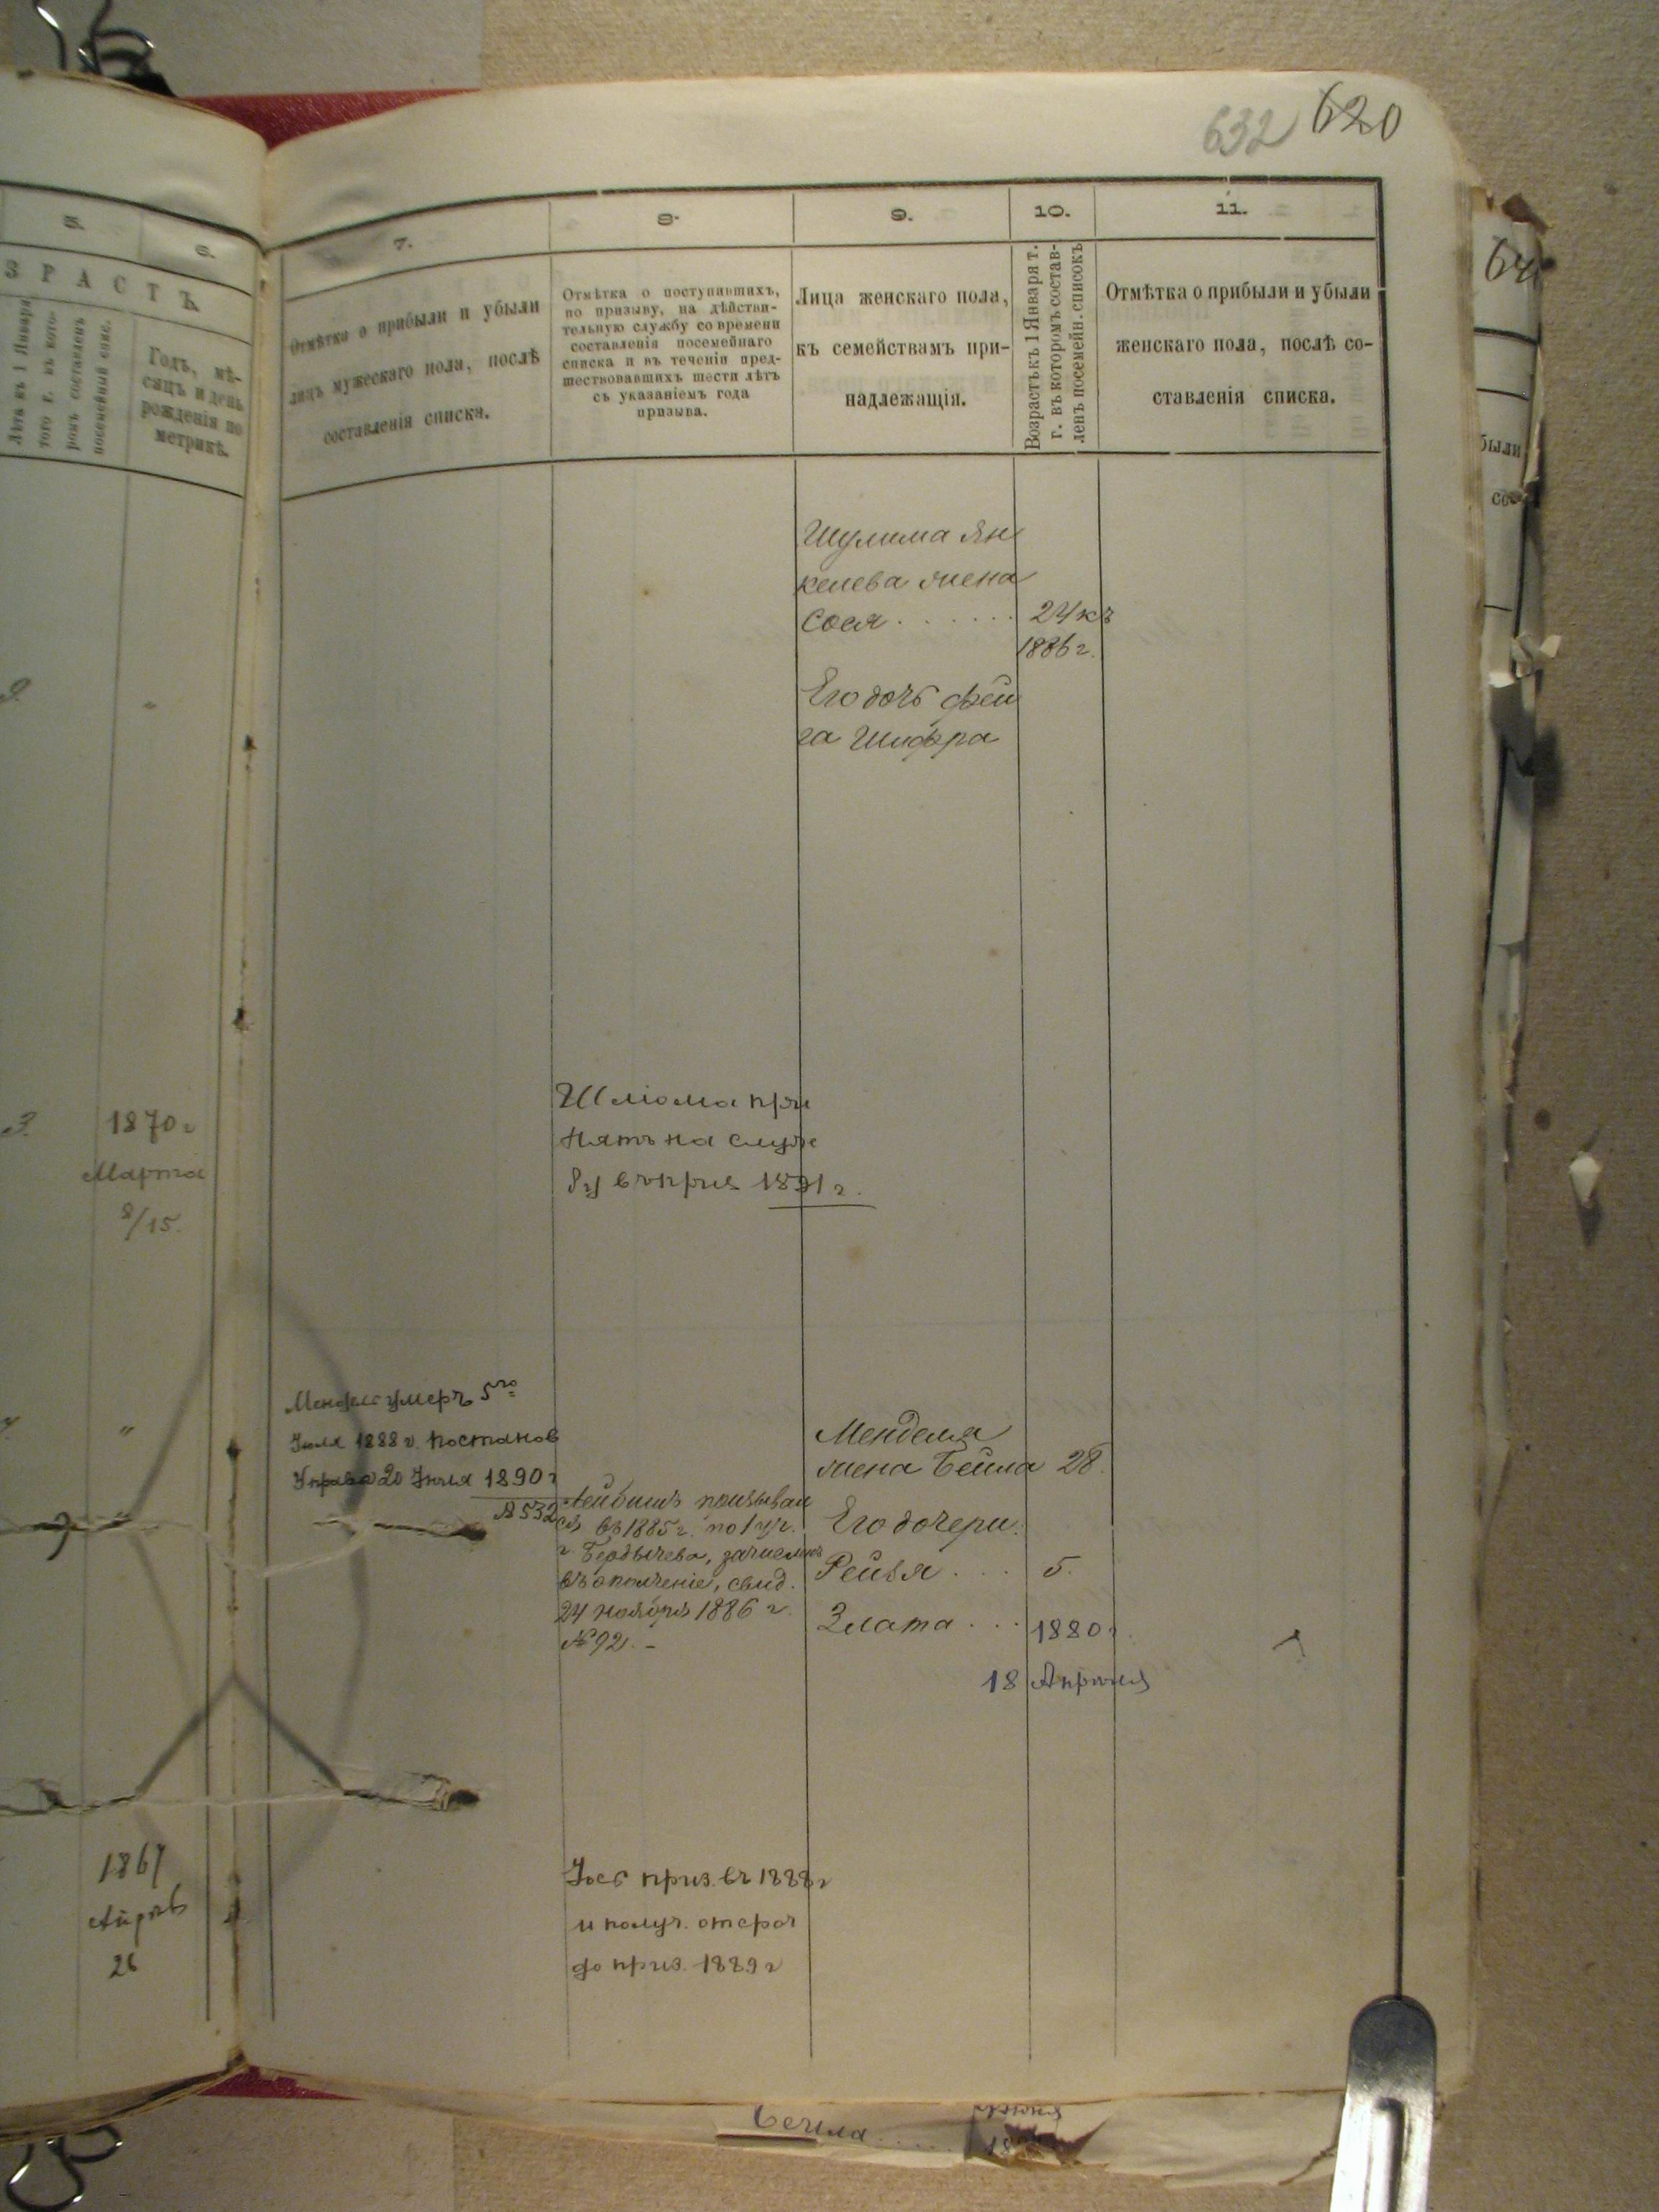 632 620
5.
6.
З Р А С Т Ъ.
Лѣта къ 1 Января
того г. въ кото-
ромъ составленъ
посемейный спис.
Годъ, мѣ-
сяцъ и день
рожденія по
метрикѣ.
1870 г
Марта
8/15.
"
1867
26
7.
Отмѣтка о прибыли и убыли
лицъ мужескаго пола, послѣ
составленія списка.
8.
Отмѣтка о поступившихъ,
по призыву, на дѣйстви-
тельную службу со времени
составленія посемейнаго
списка и въ теченіи пред-
шествовавшихъ шести лѣтъ
съ указаніемъ года
призыва.
9.
Лица женскаго пола,
къ семействамъ при-
надлежащія.
10.
Возрастъ къ 1 Января т.
г. въ которомъ состав-
ленъ посемейн. списокъ
11.
Отмѣтка о прибыли и убыли
женскаго пола, послѣ со-
ставленія списка.
Шулима Ян
келева жена
Сося . . . . . . 24 къ
1886 г.
Его дочь Фей
га Шифра
Шлiома при
нятъ на служ
бу въ приз 1891 г.
Мендель умеръ 5го
Іюля 1888 г. постанов
Управы 20 Іюля 1890 г
№ 532
Лейбишъ призывал
ся въ 1885 г. по 1 уч.
г Бердычева, зачисленъ
въ ополченіе, свид.
24 ноября 1886 г.
№ 921. –
Менделя
жена Бейла 28.
Его дочери:
Рейзя . . . 5.
Злата . . . 1880 г.
18 Апрѣля
Іось приз. въ 1888 г
и получ. отсроч
до приз. 1889 г
были
со-
Бейла . . . . .